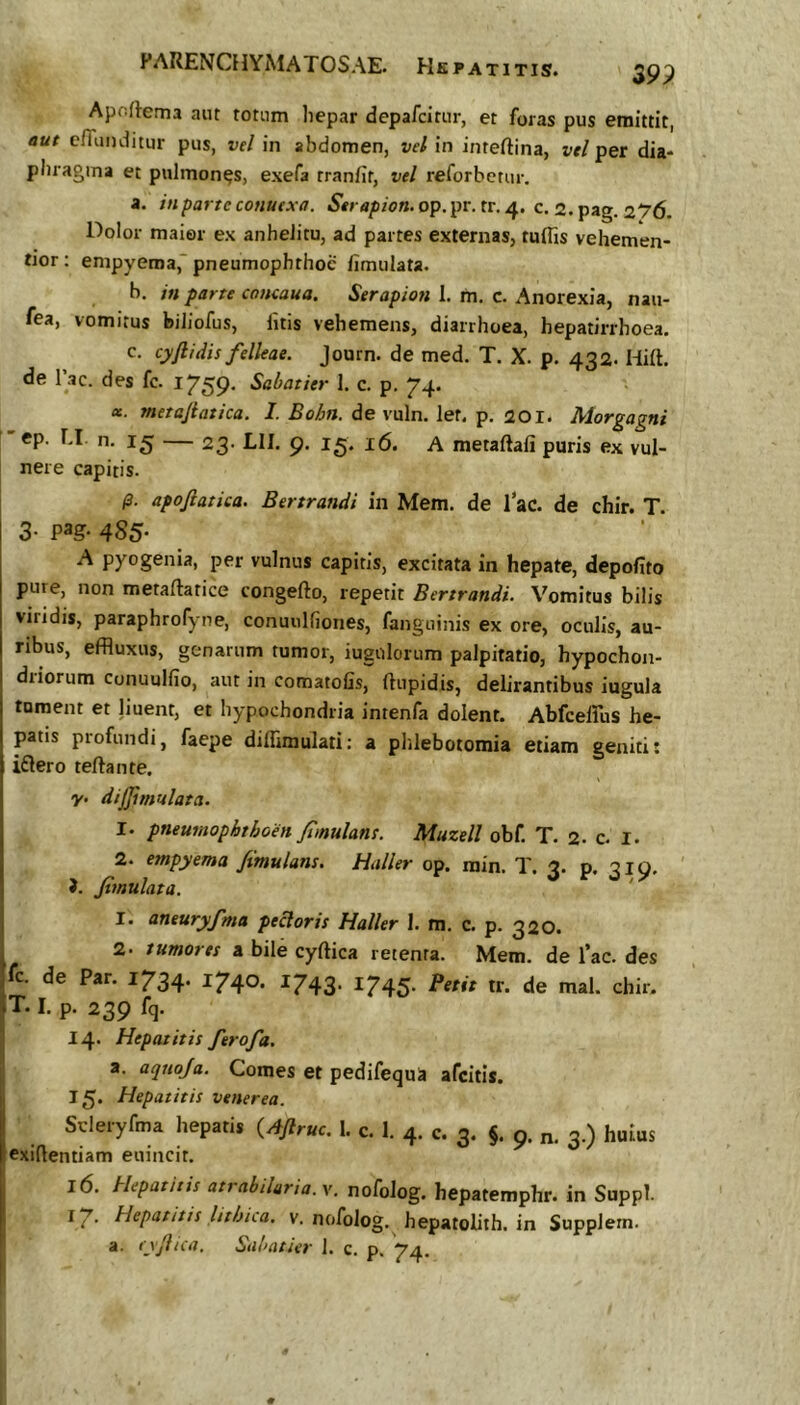 PARENCHYMATOSAE. HEPATITIS. 399
Apoſtema aut totum hepar depaſcitur, et foras pus emittit,
aut effunditur pus, vel in abdomen, vel in inteſtina, vel per dia-
phragma et pulmones, exeſa tranſit, vel reſorbetur.
a. in parte conuexa. Serapion. op. pr. tr. 4. c. 2. pag. 276.
Dolor maior ex anhelitu, ad partes externas, tuſſis vehemen-
tior: empyema, pneumophthoë ſimulata.
b. in parte concaua. Serapion l. m. c. Anorexia, nau-
ſea, vomitus bilioſus, ſitis vehemens, diarrhoea, hepatirrhoea.
c. cyſtidis felleae. Journ. de med. T. X. p. 432. Hiſt.
de l'ac. des ſc. 1759. Sabatier l. c. p. 74.
α. metaſtatica. I. Bohn. de vuln. let. p. 201. Morgagni
ep. LI. n. 15 — 23. LII. 9. 15. 16. A metaſtaſi puris ex vul-
nere capitis.
β. apoſtatica. Bertrandi in Mem. de l'ac. de chir. T.
3. pag. 485.
A pyogenia, per vulnus capitis, excitata in hepate, depoſito
pure, non metaſtatice congeſto, repetit Bertrandi. Vomitus bilis
viridis, paraphroſyne, conuulſiones, ſanguinis ex ore, oculis, au-
ribus, effluxus, genarum tumor, iugulorum palpitatio, hypochon-
driorum conuulſio, aut in comatoſis, ſtupidis, delirantibus iugula
tument et liuent, et hypochondria intenſa dolent. Abſceſſus he-
patis profundi, ſaepe diſſimulati: a phlebotomia etiam geniti:
ictero teſtante.
γ. diſſimulata.
1. pneumophthoën ſimulans. Muzell obſ. T. 2. c. 1.
2. empyema ſimulans. Haller op. min. T. 3. p. 319.
δ. ſimulata.
1. aneuryſma pectoris Haller l. m. c. p. 320.
2. tumores a bile cyſtica retenta. Mem. de l'ac. des
ſc. de Par. 1734. 1740. 1743. 1745. Petit tr. de mal. chir.
T. I. p. 239 ſq.
14. Hepatitis ſeroſa.
a. aquoſa. Comes et pediſequa aſcitis.
15. Hepatitis venerea.
Scleryſma hepatis (Aſtruc. l. c. l. 4. c. 3. §. 9. n. 3.) huius
exiſtentiam euincit.
16. Hepatitis atrabilaria. v. noſolog. hepatemphr. in Suppl.
17. Hepatitis lithica. v. noſolog. hepatolith. in Supplem.
a. cyſtica. Sabatier l. c. p. 74.